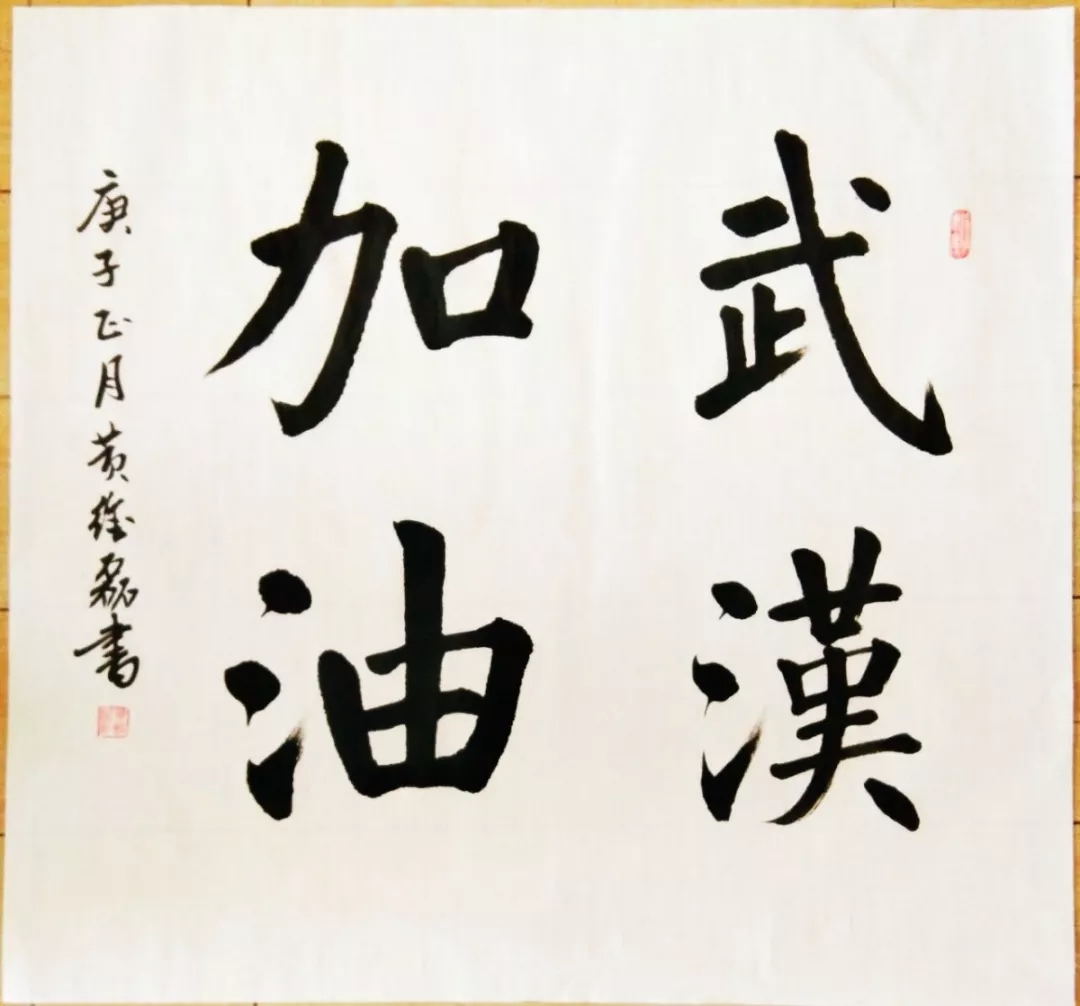 武漢
加油
庚子正月黄維磊書